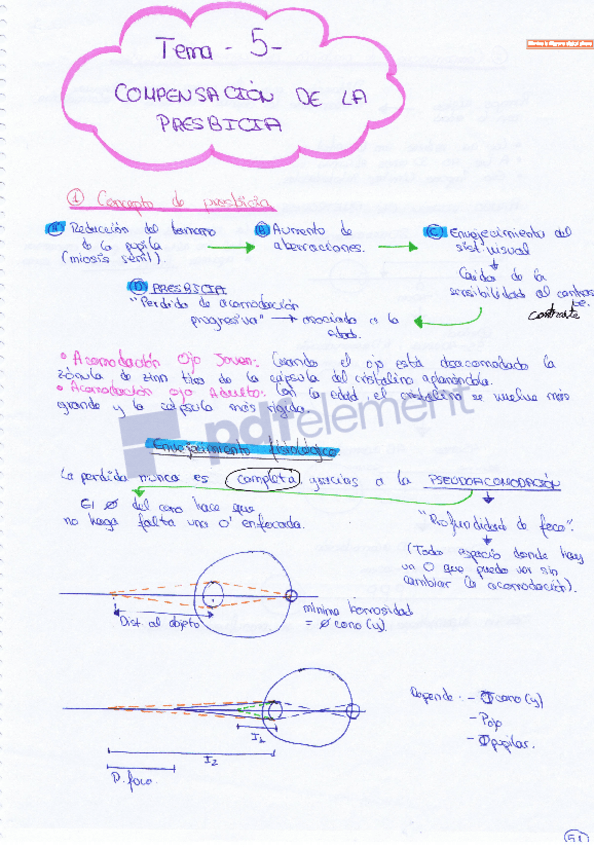 Tema - 5 -
COMPENSACIÓN DE LA
PRESBICIA
① Concepto de presbicia
Ⓐ Reducción del tamaño
de la pupila
(miosis senil).
Ⓑ Aumento de
aberraciones.
Ⓒ Envejecimiento del
sist. visual
Caída de la
sensibilidad al contras
te.
contraste
Ⓓ PRESBICIA
"Perdida de acomodación
progresiva" → asociada a la
edad.
• Acomodación Ojo Joven: Cuando el ojo está desacomodado la
zónula de zinn tira de la cápsula del cristalino aplanándola.
• Acomodación ojo Adulto: Con la edad, el cristalino se vuelve más
grande y la cápsula más rígida.
pdfelement
Envejecimiento fisiológico
La perdida nunca es completa gracias a la PSEUDOACOMODACIÓN
El Ø del cono hace que
no haga falta una O' enfocada.
"Profundidad de foco".
(Todo espacio donde hay
un O que puedo ver sin
cambiar la acomodación).
Dist al objeto
mínima borrosidad
= Ø cono (y).
Depende: - Φ cono (y)
- Pojo
- Φ pupilar.
I1
I2
P. foco
51